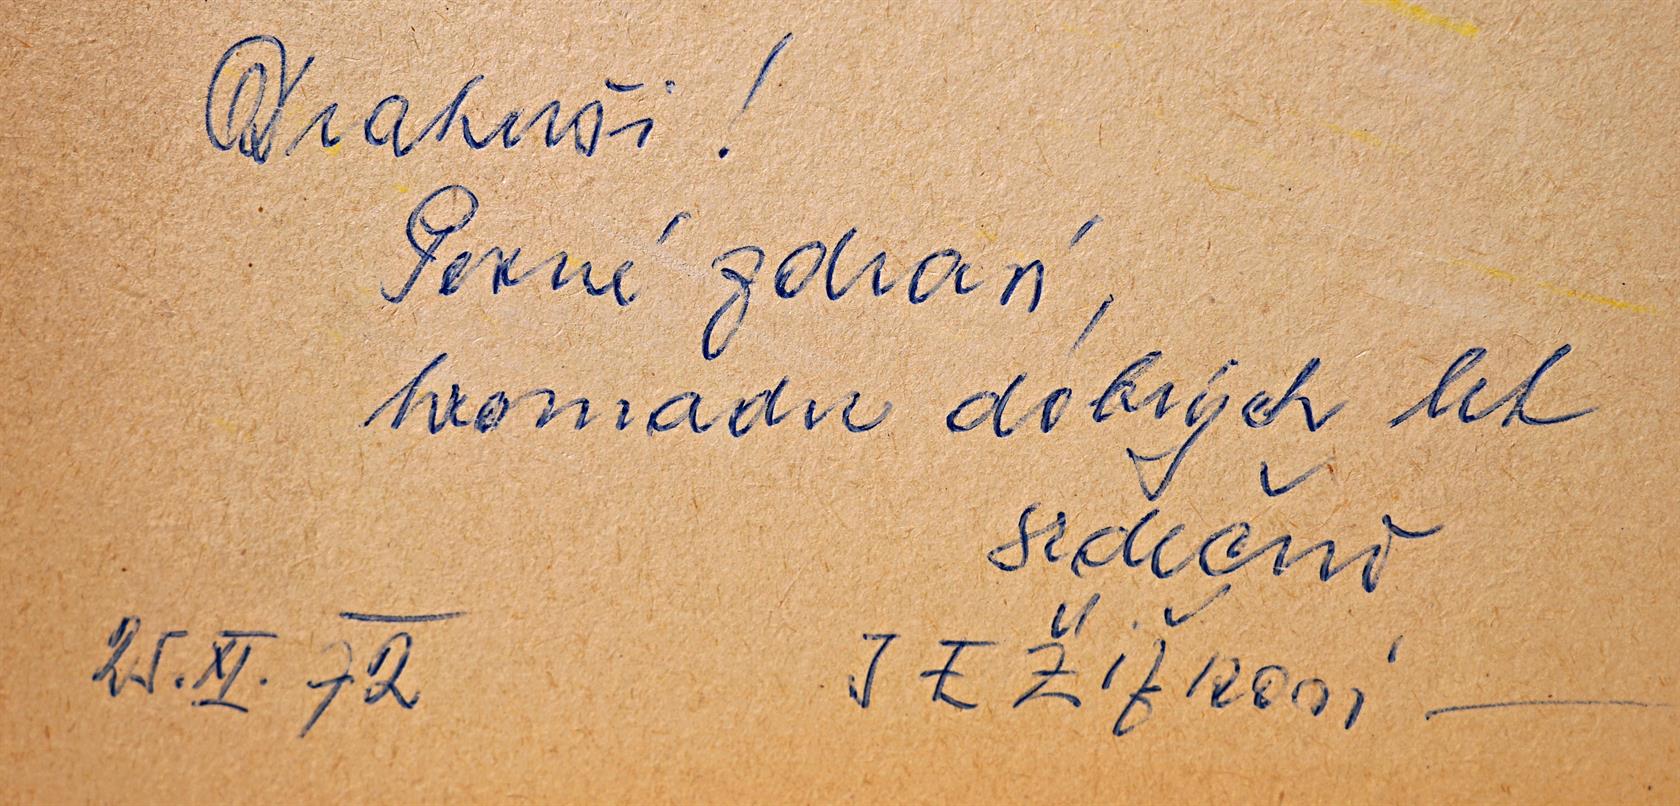 Drahuši!
Pevné zdraví,
hromadu dobrých let
srdečně
25.XI.72